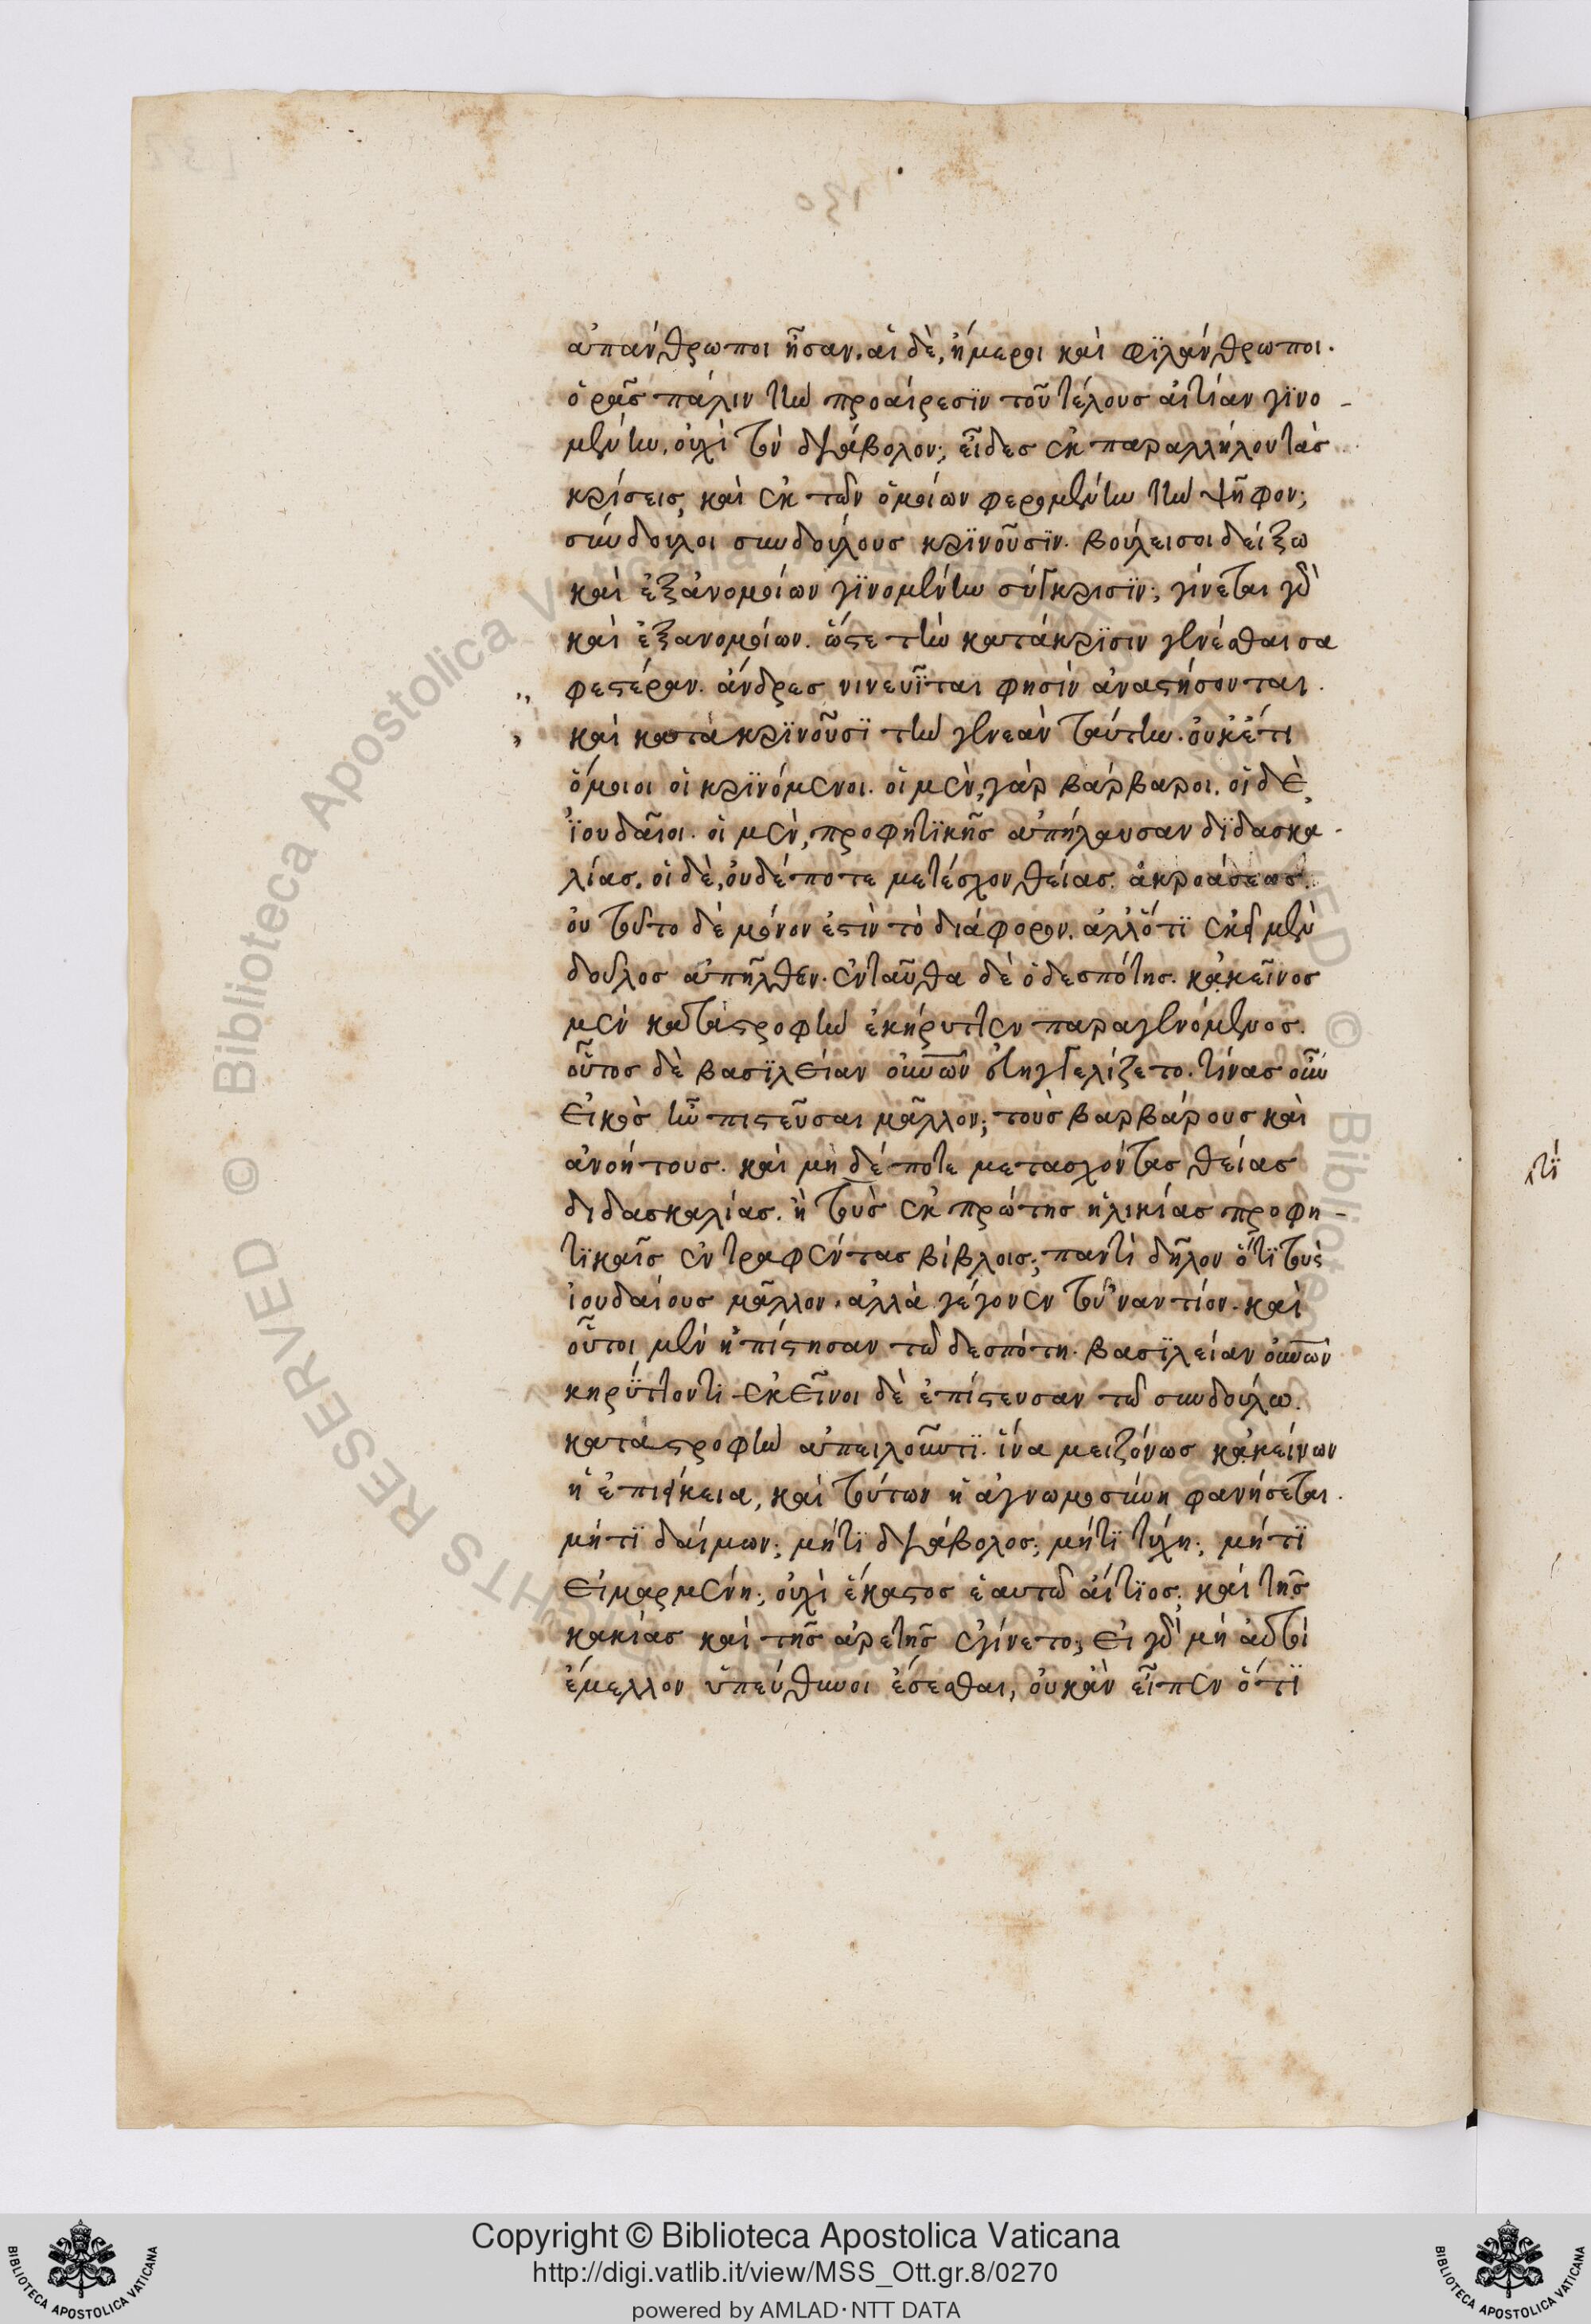 ἀπάνθρωποι ἦσαν. αἱ δὲ, ἥμεροι καὶ φϊλάνθρωποι.
ὁρᾷς πάλιν τὴν προαίρεσϊν τοῦ τέλους αἰτίαν γϊνο-
μένην. οὐχὶ τὸν διάβολον; εἶδες ἐκ παραλλήλου τὰς
κρίσεις, καὶ ἐκ τῶν ὁμοίων φερομένην τὴν ψῆφον;
σύνδουλοι συνδούλους κρϊνοῦσϊν. βούλει σοι δείξω
καὶ ἐξ ἀνομοίων γϊνομένην σύγκρισϊν; γίνεται γὰρ
καὶ ἐξ ἀνομοίων. ὥστε τὴν κατάκρϊσιν γενέσθαι σα
φεστέραν. ἄνδρες νινευῗται φησὶν ἀναστήσονται.
καὶ κατακρϊνοῦσϊ τὴν γενεὰν ταύτην. οὐκέτι
ὅμοιοι οἱ κρϊνόμενοι. οἱ μὲν, γὰρ βάρβαροι. οἱ δὲ,
ἰουδαῖοι. οἱ μὲν, προφητϊκῆς ἀπήλαυσαν δϊδασκα-
λίας. οἱ δὲ, οὐδέποτε μετέσχον θείας ἀκροάσεως.
οὐ τοῦτο δὲ μόνον ἐστὶν τὸ διάφορον. ἀλλ' ὅτϊ ἐκεῖ μὲν
δοῦλος ἀπῆλθεν. ἐνταῦθα δὲ ὁ δεσπότης. κἀκεῖνος
μὲν καταστροφὴν ἐκήρυττεν παραγενόμενος.
οὗτος δὲ βασϊλείαν οὐνῶν εὐηγγελίζετο. τίνας οὖν
εἰκὸς ἦν πιστεῦσαι μᾶλλον; τοὺς βαρβάρους καὶ
ἀνοήτους. καὶ μηδέποτε μετασχόντας θείας
διδασκαλίας. ἢ τοὺς ἐκ πρώτης ἡλικίας προφη-
τϊκαῖς ἐντραφέντας βίβλοις; παντὶ δῆλον ὅτϊ τοὺς
ἰουδαίους μᾶλλον. ἀλλὰ γέγονεν τοὐναντίον. καὶ
οὗτοι μὲν ἠπίστησαν τῶ δεσπότη. βασϊλείαν οὐνῶν
κηρύττοντι. ἐκεῖνοι δὲ ἐπίστευσαν τῶ συνδούλω.
καταστροφὴν ἀπειλοῦντϊ. ἵνα μειζόνως κἀκείνων
ἡ ἐπιείκεια, καὶ τούτων ἡ ἀγνωμοσύνη φανήσεται.
μήτϊ δαίμων; μήτϊ διάβολος; μήτϊ τύχη; μήτϊ
εἱμαρμένη; οὐχὶ ἕκαστος ἑαυτῶ αἴτϊος; καὶ τῆς
κακίας καὶ τῆς ἀρετῆς ἐγίνετο; εἰ γὰρ μὴ αὐτοὶ
ἔμελλον ὑπεύθυνοι ἔσεσθαι, οὐκ ἂν εἶπεν ὅτϊ
Copyright © Biblioteca Apostolica Vaticana
http://digi.vatlib.it/view/MSS_Ott.gr.8/0270
powered by AMLAD·NTT DATA